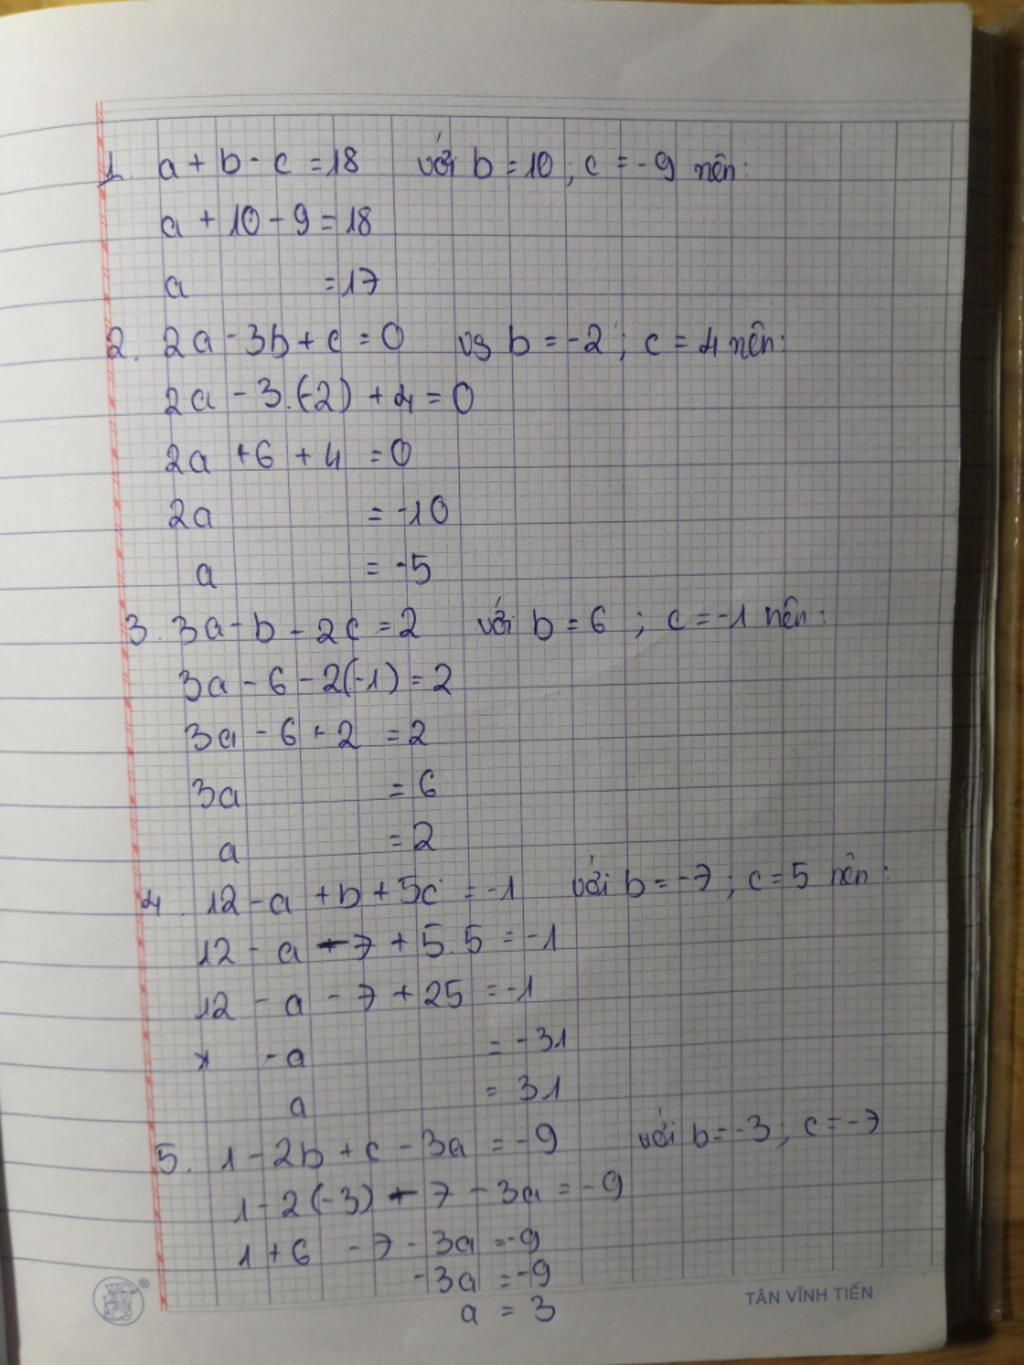 1. a + b - c = 18 với b = 10 ; c = -9 nên:
a + 10 - 9 = 18
a = 17
2. 2a - 3b + c = 0 vs b = -2 ; c = 4 nên:
2a - 3.(-2) + 4 = 0
2a + 6 + 4 = 0
2a = -10
a = -5
3. 3a - b - 2c = 2 với b = 6 ; c = -1 nên:
3a - 6 - 2(-1) = 2
3a - 6 + 2 = 2
3a = 6
a = 2
4. 12 - a + b + 5c = -1 với b = -7 ; c = 5 nên:
12 - a - 7 + 5.5 = -1
12 - a - 7 + 25 = -1
-a = -31
a = 31
5. 1 - 2b + c - 3a = -9 với b = -3 ; c = -7
1 - 2(-3) - 7 - 3a = -9
1 + 6 - 7 - 3a = -9
-3a = -9
a = 3
TÂN VĨNH TIẾN